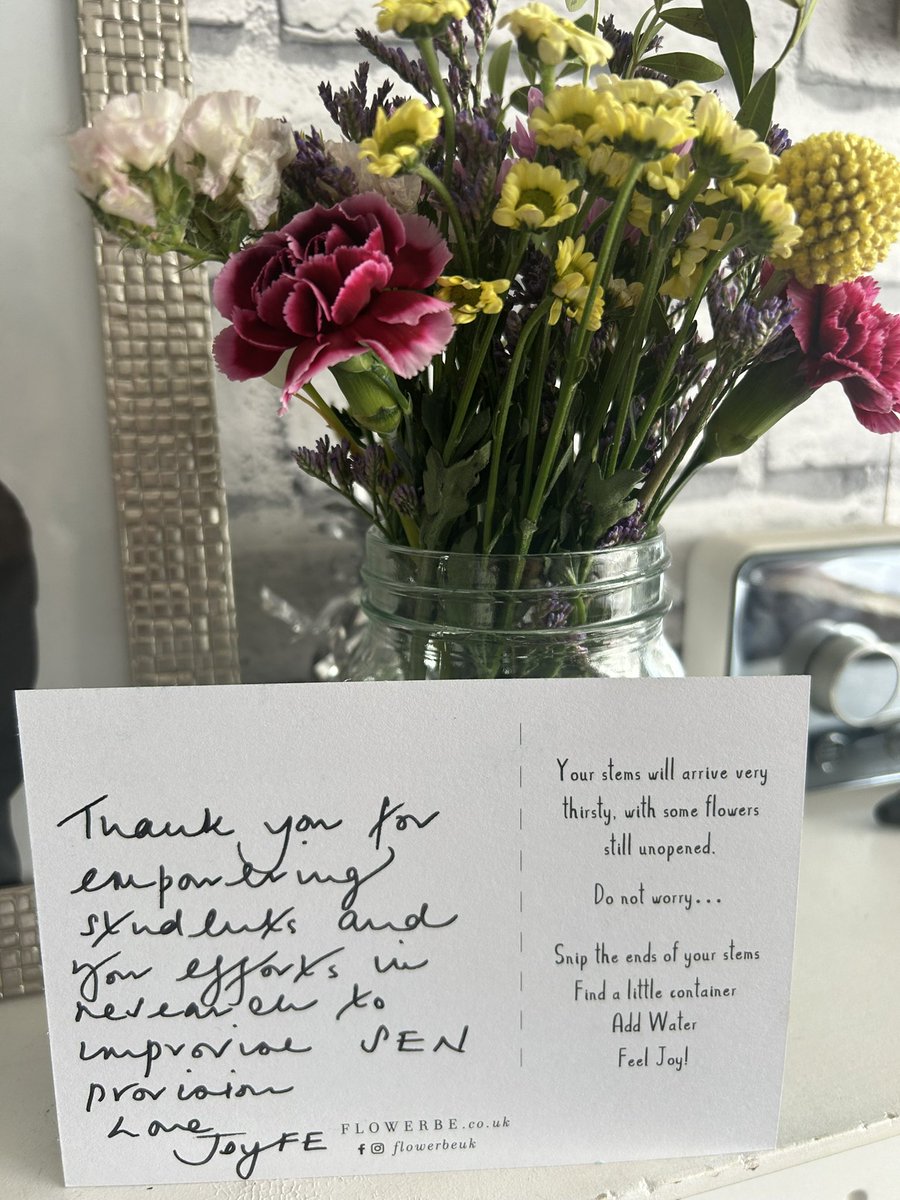 Thank you for
empowering
students and
your efforts in
research to
improvise SEN
provision
Love
JoyFE
Your stems will arrive very
thirsty, with some flowers
still unopened.
Do not worry...
Snip the ends of your stems
Find a little container
Add Water
Feel Joy!
FLOWERBE.co.uk
flowerbeuk